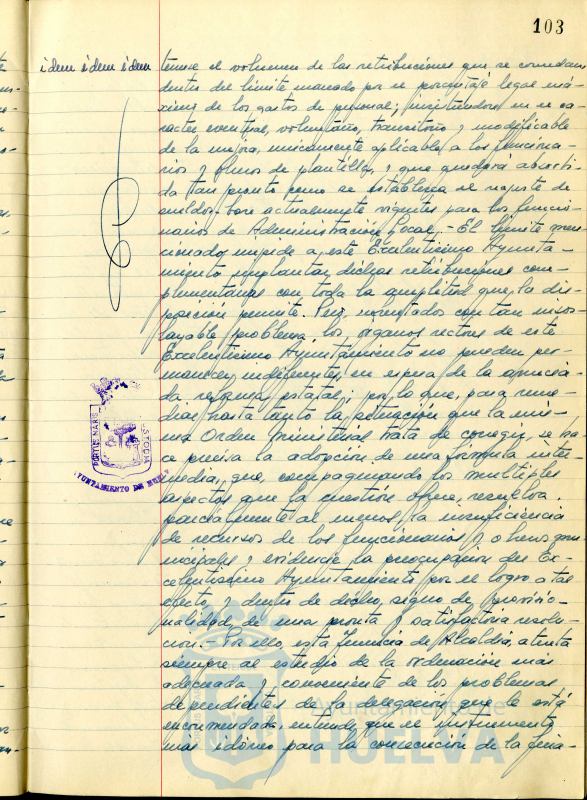 103
idem idem idem
tenerse el volumen de las retribuciones que se concedan
dentro del límite marcado por el porcentaje legal má-
ximo de los gastos de personal; insistiendose en el ca-
racter eventual, voluntario, transitorio y modificable
de la mejora, unicamente aplicable, a los funciona-
rios y obreros de plantilla, y que quedará absorbi-
da tan pronto como se establezca el reajuste de
sueldos base actualmente vigentes para los funcio-
narios de Administración Local.- El límite men-
cionado, impide a, este Excelentísimo Ayunta-
miento implantar, dichas retribuciones com-
plementarias con toda la amplitud que, la dis-
posición permite. Pero, enfrentados con tan inso-
layable problema, los órganos rectores de este
Excelentísimo Ayuntamiento no pueden per-
manecer, indiferentes, en espera de la anuncia-
da reforma estatal; por lo que, para reme-
diar, hasta tanto la, situación que la mis-
ma Orden Ministerial trata de corregir, se ha-
ce precisa la adopción de una formula inter-
media, que, compaginando los multiples
aspectos que la cuestión ofrece, resuelva
parcialmente al menos, la insuficiencia
de recursos de los funcionarios y obreros mu-
nicipales y evidencie la preocupación del Ex-
celentísimo Ayuntamiento, por el logro a tal
efecto, y dentro de dicho, signo de, provisio-
nalidad, de una pronta y satisfactoria resolu-
ción.- Por ello, esta Tenencia de Alcaldía, atenta
siempre al estudio de la ordenación más
adecuada y conveniente de los problemas
dependientes de la delegación, que le está
encomendada, entiende, que el instrumento
más idóneo para la consecución de la fina-
PORTUS MARIS
CUSTODIA
AYUNTAMIENTO DE HUELVA
Ayuntamiento de
HUELVA